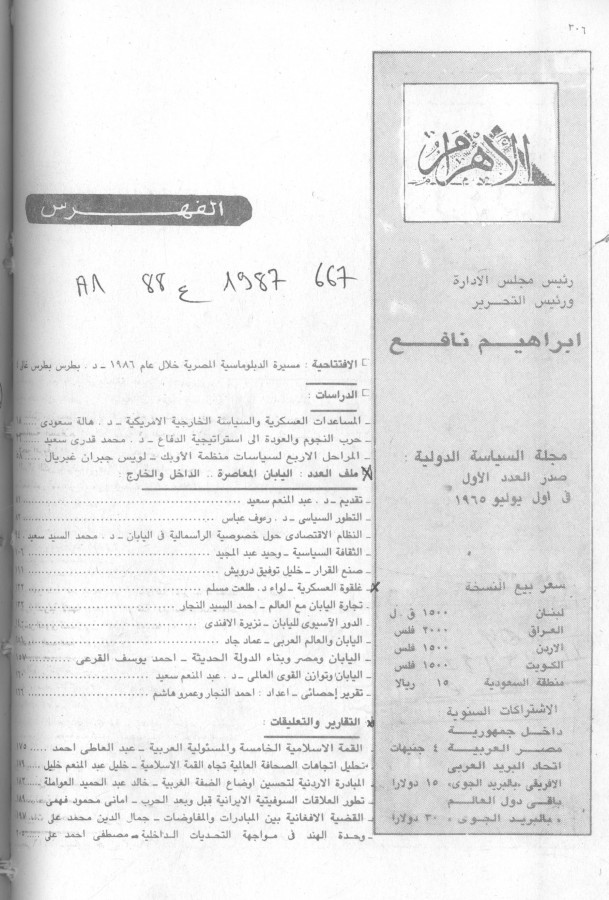 ٣٠٦
الأهرام
رئيس مجلس الادارة
ورئيس التحرير
ابراهيم نافع
مجلة السياسة الدولية :
صدر العدد الأول
فى اول يوليو ١٩٦٥
سعر بيع النسخة
لبنان ١٥٠٠ ق . ل
العراق ٢٠٠٠ فلس
الاردن ١٥٠٠ فلس
الكويت ١٥٠٠ فلس
منطقة السعودية ١٥ ريالا
الاشتراكات السنوية
داخل جمهورية
مصر العربية ٤ جنيهات
اتحاد البريد العربى
الافريقى ،بالبريد الجوى، ١٥ دولارا
باقى دول العالم
،بالبريد الجوى، ٣٠ دولارا
الفهرس
A1 88 ع 1987 667
الافتتاحية : مسيرة الدبلوماسية المصرية خلال عام ١٩٨٦ ـ د . بطرس بطرس
الدراسات :
ـ المساعدات العسكرية والسياسة الخارجية الامريكية ـ د . هالة سعودى
ـ حرب النجوم والعودة الى استراتيجية الدفاع ـ د . محمد قدرى سعيد
ـ المراحل الاربع لسياسات منظمة الأوبك ـ لويس جبران غبريال
ملف العدد : اليابان المعاصرة .. الداخل والخارج :
ـ تقديم ـ د . عبد المنعم سعيد
ـ التطور السياسى ـ د . رءوف عباس
ـ النظام الاقتصادى حول خصوصية الراسمالية فى اليابان ـ د . محمد السيد سعيد
ـ الثقافة السياسية ـ وحيد عبد المجيد
ـ صنع القرار ـ خليل توفيق درويش
ـ غلقوة العسكرية ـ لواء د. طلعت مسلم
ـ تجارة اليابان مع العالم ـ احمد السيد النجار
ـ الدور الآسيوى لليابان ـ نزيرة الافندى
ـ اليابان والعالم العربى ـ عماد جاد
ـ اليابان ومصر وبناء الدولة الحديثة ـ احمد يوسف القرعى
ـ اليابان وتوازن القوى العالمى ـ د . عبد المنعم سعيد
ـ تقرير إحصائى ـ اعداد : احمد النجار وعمرو هاشم
التقارير والتعليقات :
ـ القمة الاسلامية الخامسة والمسئولية العربية ـ عبد العاطى احمد ١٧٥
ـ تحليل اتجاهات الصحافة العالمية تجاه القمة الاسلامية ـ خليل عبد المنعم خليل
ـ المبادرة الاردنية لتحسين اوضاع الضفة الغربية ـ خالد عبد الحميد العواملة
ـ تطور العلاقات السوفيتية الايرانية قبل وبعد الحرب ـ امانى محمود فهمى
ـ القضية الافغانية بين المبادرات والمفاوضات ـ جمال الدين محمد على
ـ وحدة الهند فى مواجهة التحديات الداخلية ـ مصطفى احمد على